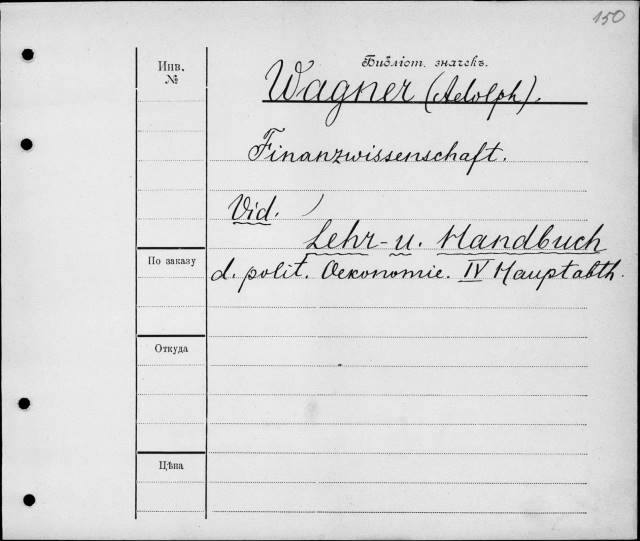 150
Инв.
№
Библіот. значекъ.
Wagner (Adolph).
Finanzwissenschaft.
Vid.
Lehr- u. Handbuch
По заказу
d. polit. Oekonomie. IV Hauptabth.
Откуда
Цѣна